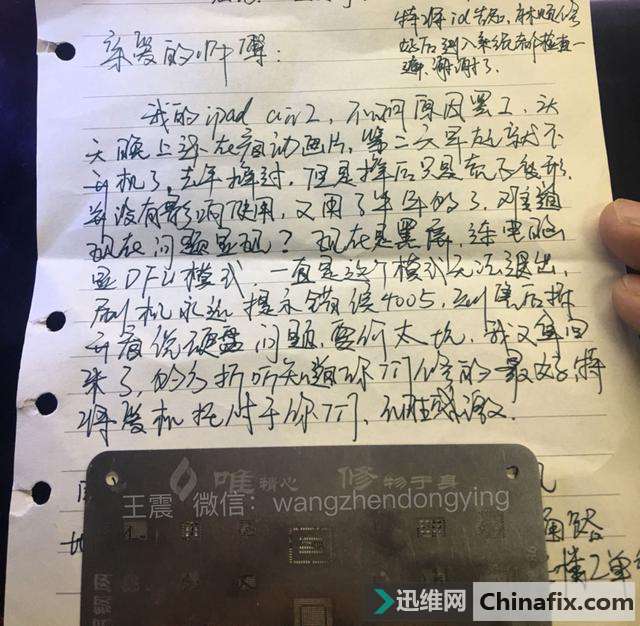 特将id告知，麻烦修
好后进入系统帮检查一
遍，谢谢了。
亲爱的
我的ipad air2，不知何原因罢工，头
天晚上还在看动画片，第二天早起就不
开机了，去年摔过，但是摔后只是壳子变形，
并没有影响使用，又用了半年的了，难道
现在问题显现？现在是黑屏，连电脑
显DFU模式，一直是这个模式无法退出，
刷机永远提示错误4005，到店后拆
开看说硬盘问题，要价太坑，我又拿回
来了，多打听知道你们修的最好，特
将爱机托付于你们，不胜感激
唯 精心 修 物于真
王震 微信：wangzhendongying
迅维网 Chinafix.com